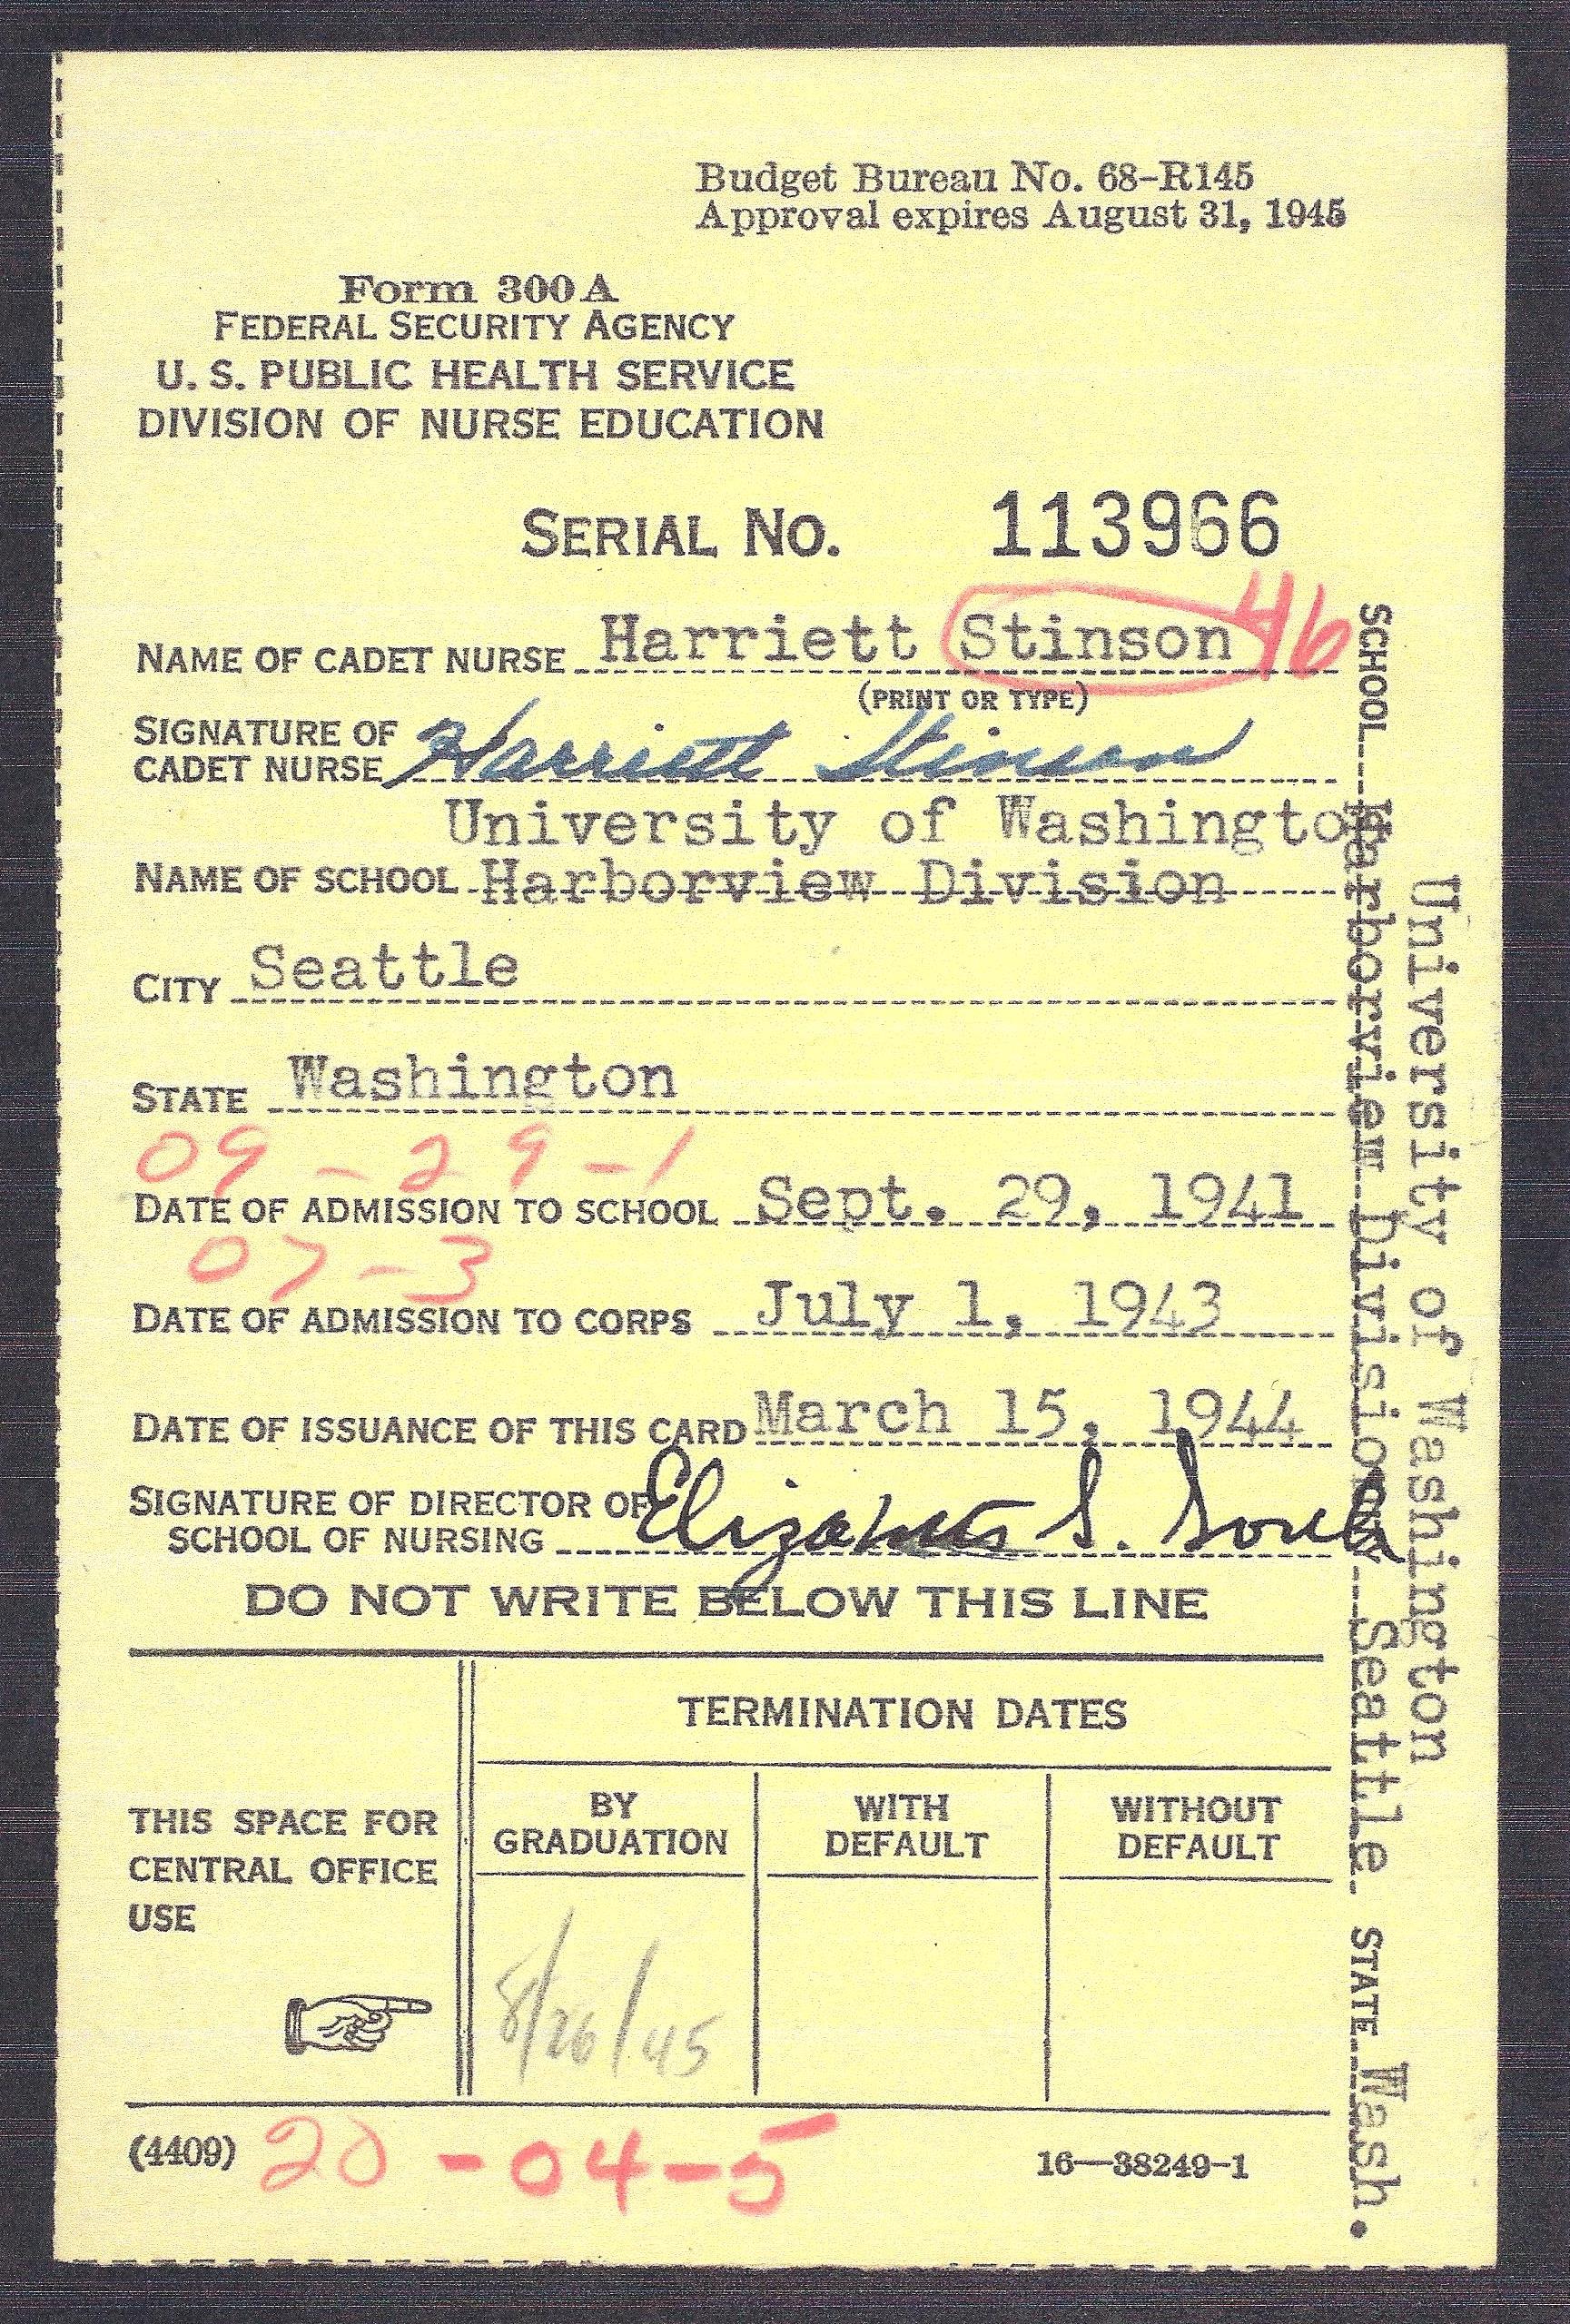 Budget Bureau No. 68-R145
Approval expires August 31, 1945
Form 300 A
FEDERAL SECURITY AGENCY
U. S. PUBLIC HEALTH SERVICE
DIVISION OF NURSE EDUCATION
SERIAL NO. 113966
NAME OF CADET NURSE Harriett Stinson 46
(PRINT OR TYPE)
SIGNATURE OF
CADET NURSE Harriett Stinson
University of Washington
NAME OF SCHOOL Harborview Division
CITY Seattle
STATE Washington
09-29-1
DATE OF ADMISSION TO SCHOOL Sept. 29, 1941
07-3
DATE OF ADMISSION TO CORPS July 1, 1943
DATE OF ISSUANCE OF THIS CARD March 15, 1944
SIGNATURE OF DIRECTOR OF
SCHOOL OF NURSING Elizabeth S. Soule
DO NOT WRITE BELOW THIS LINE
TERMINATION DATES
THIS SPACE FOR
CENTRAL OFFICE
USE
BY
GRADUATION
WITH
DEFAULT
WITHOUT
DEFAULT
8/26/45
(4409) 20-04-5
16—38249-1
University of Washington
SCHOOL Harborview Division Seattle STATE Wash.